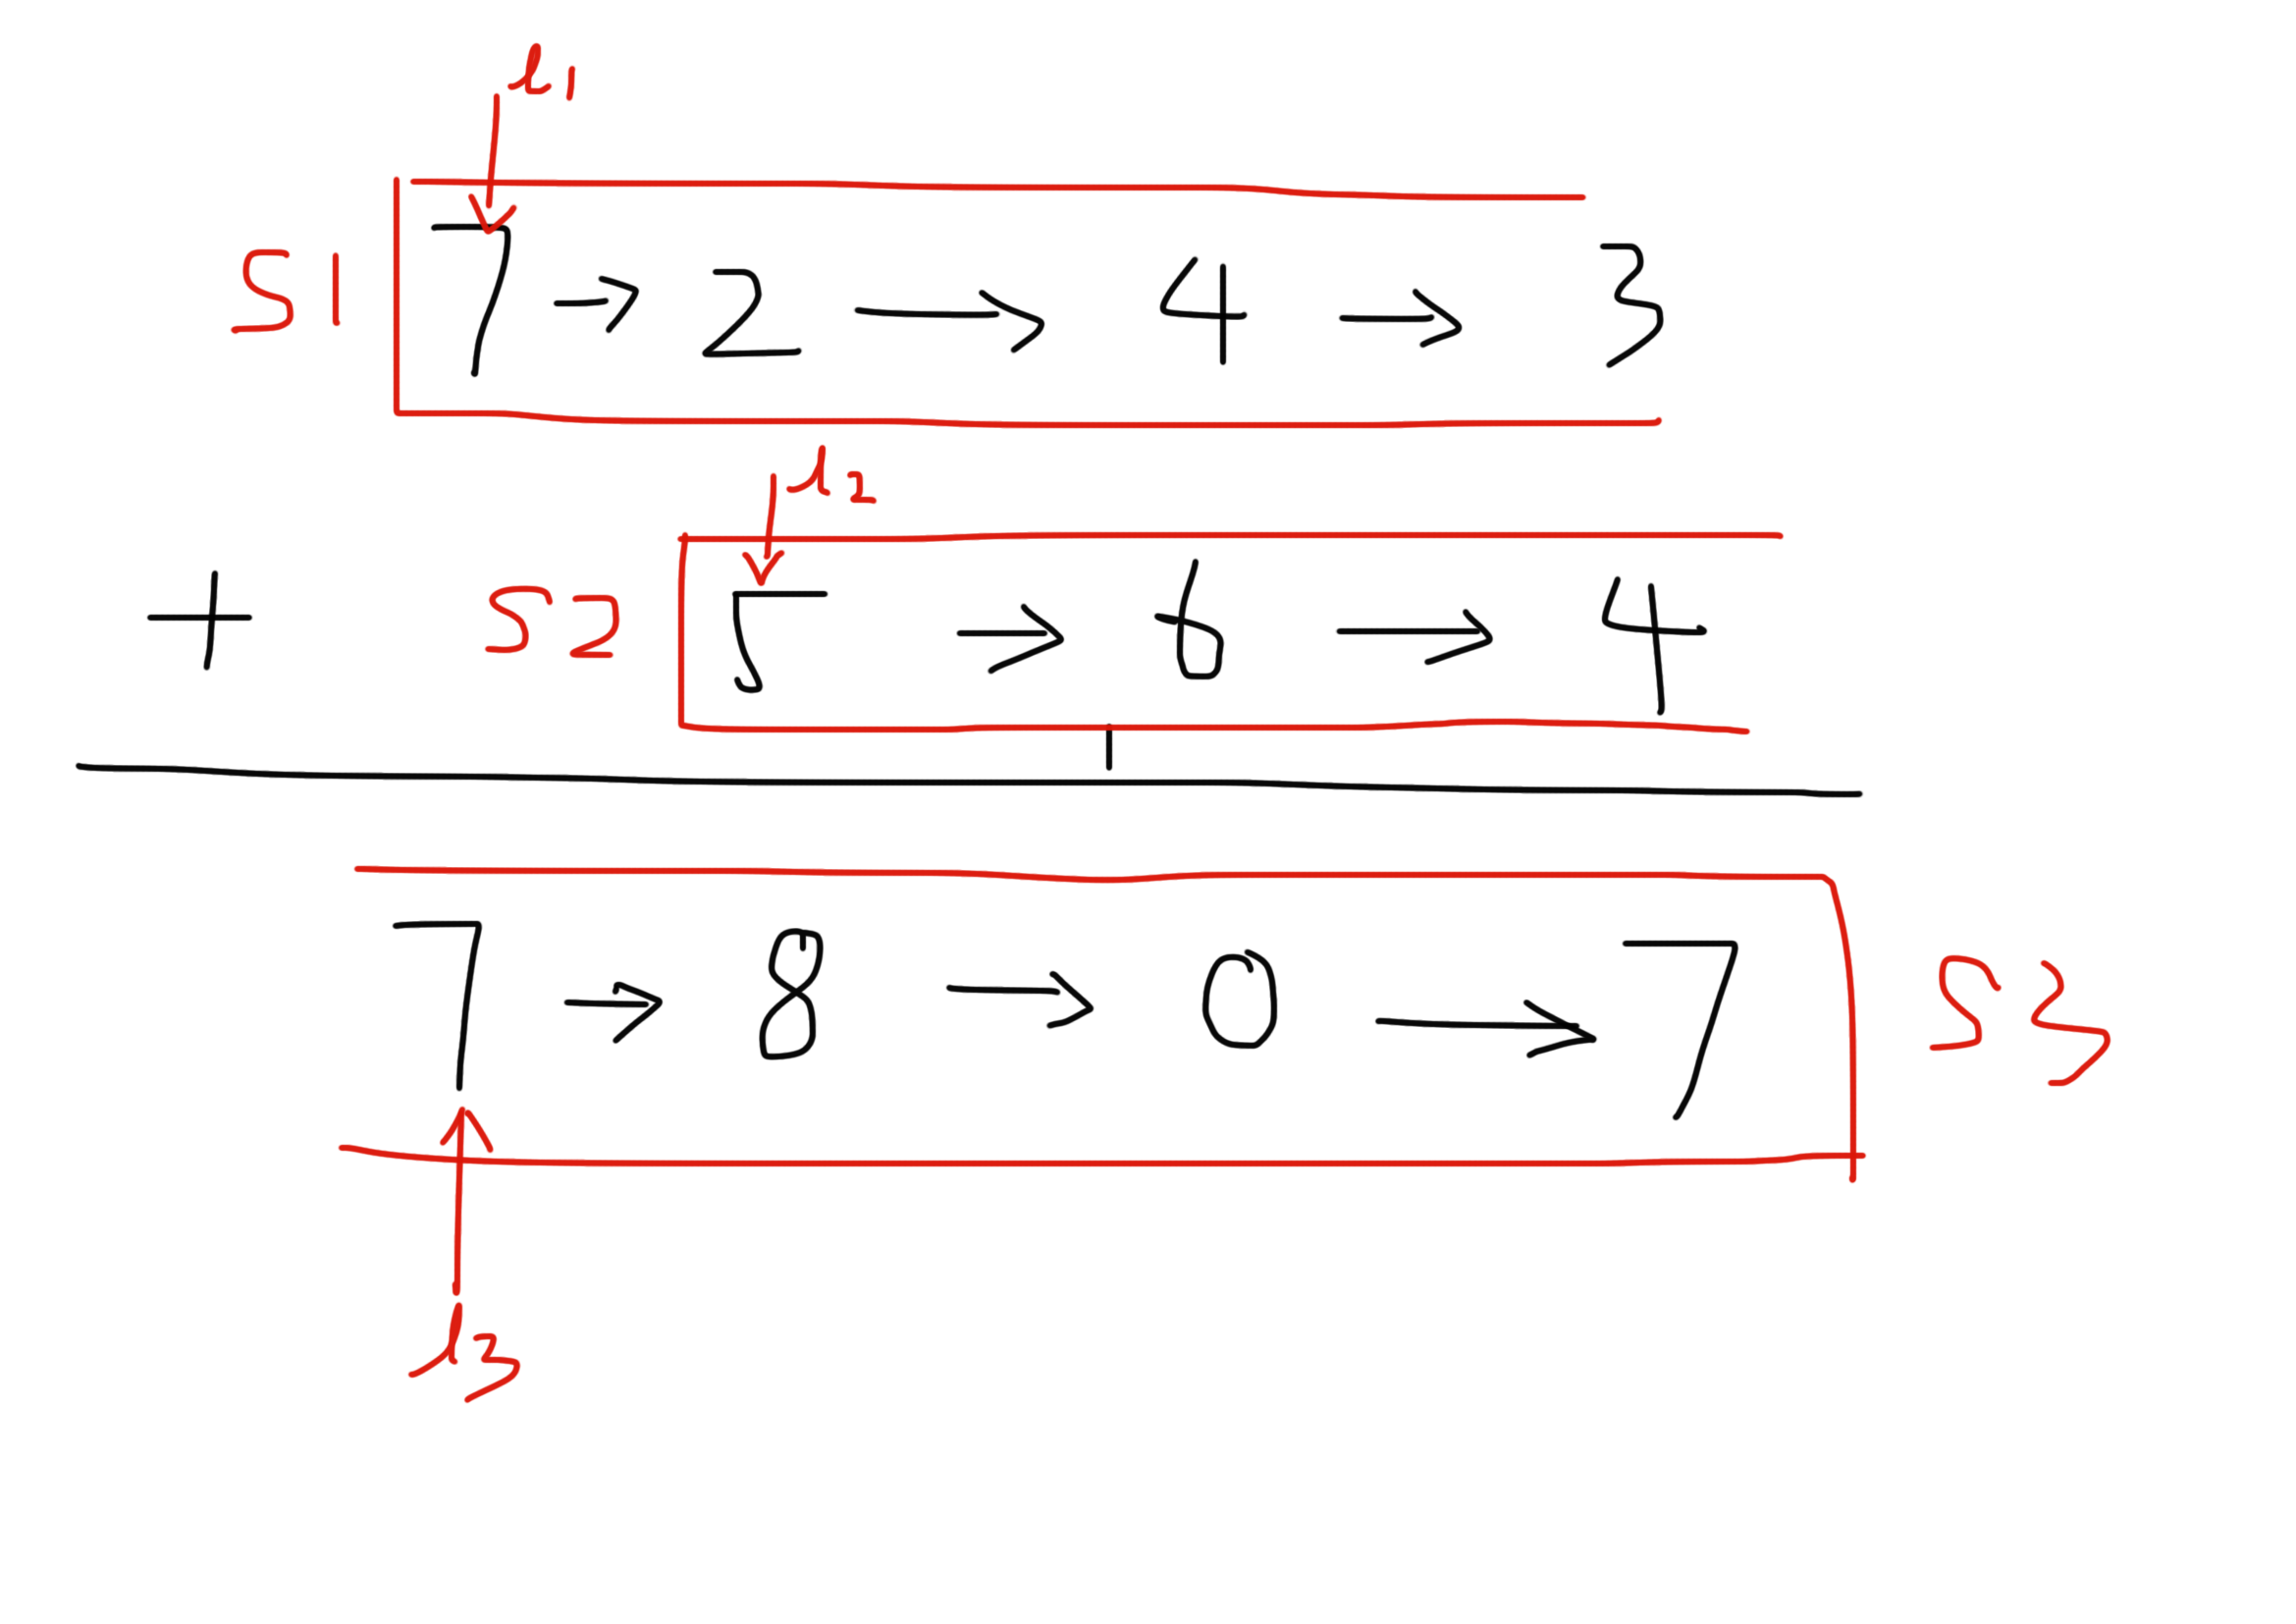 l1
S1 7 → 2 → 4 → 3
l2
+ S2 5 → 6 → 4
7 → 8 → 0 → 7 S3
l3